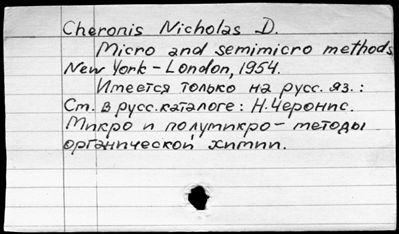 Cheronis Nicholas D.
Micro and semimicro methods
New York - London, 1954.
Имеется только на русс. яз.:
См. в русс. каталоге: Н. Черонис.
Микро и полумикро-методы
органической химии.